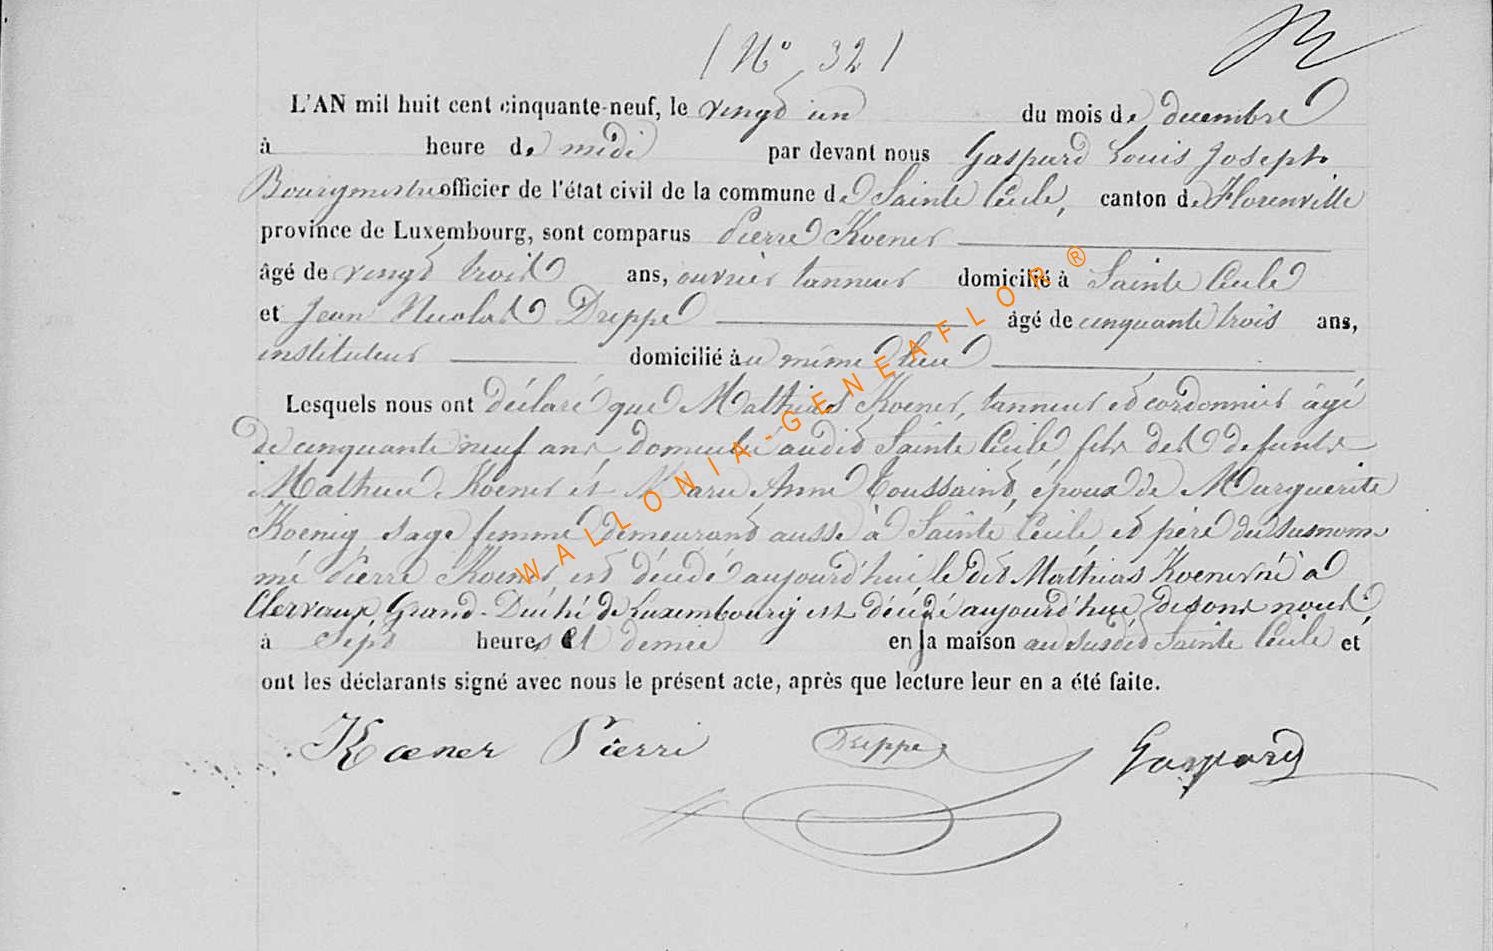 ( N° 32 )
L'AN mil huit cent cinquante-neuf, le vingt un du mois de decembre
à heure de midi par devant nous Gaspard Louis Joseph
Bourgmestre officier de l'état civil de la commune de Sainte Cécile, canton de Florenville
province de Luxembourg, sont comparus Pierre Koener
âgé de vingt trois ans, ouvrier tanneur domicilié à Sainte Cécile
et Jean Nicolas Dreppe âgé de cinquante trois ans,
instituteur domicilié au même lieu
Lesquels nous ont déclaré que Mathias Koener, tanneur et cordonnier âgé
de cinquante neuf ans, domicilié audit Sainte Cécile fils des defunts
Mathieu Koener et Marie Anne Toussaint, époux de Marguerite
Koenig sage femme demeurant aussi à Sainte Cécile et père du susnom-
mé Pierre Koener est décédé aujourd'hui, le dit Mathias Koener né à
Clervaux, Grand-Duché de Luxembourg est décédé aujourd'hui, disons nous
à sept heures et demie en sa maison au susdit Sainte Cécile et
ont les déclarants signé avec nous le présent acte, après que lecture leur en a été faite.
Koener Pierre Dreppe Gaspard
WALLONIA-GENEAFLOR ®